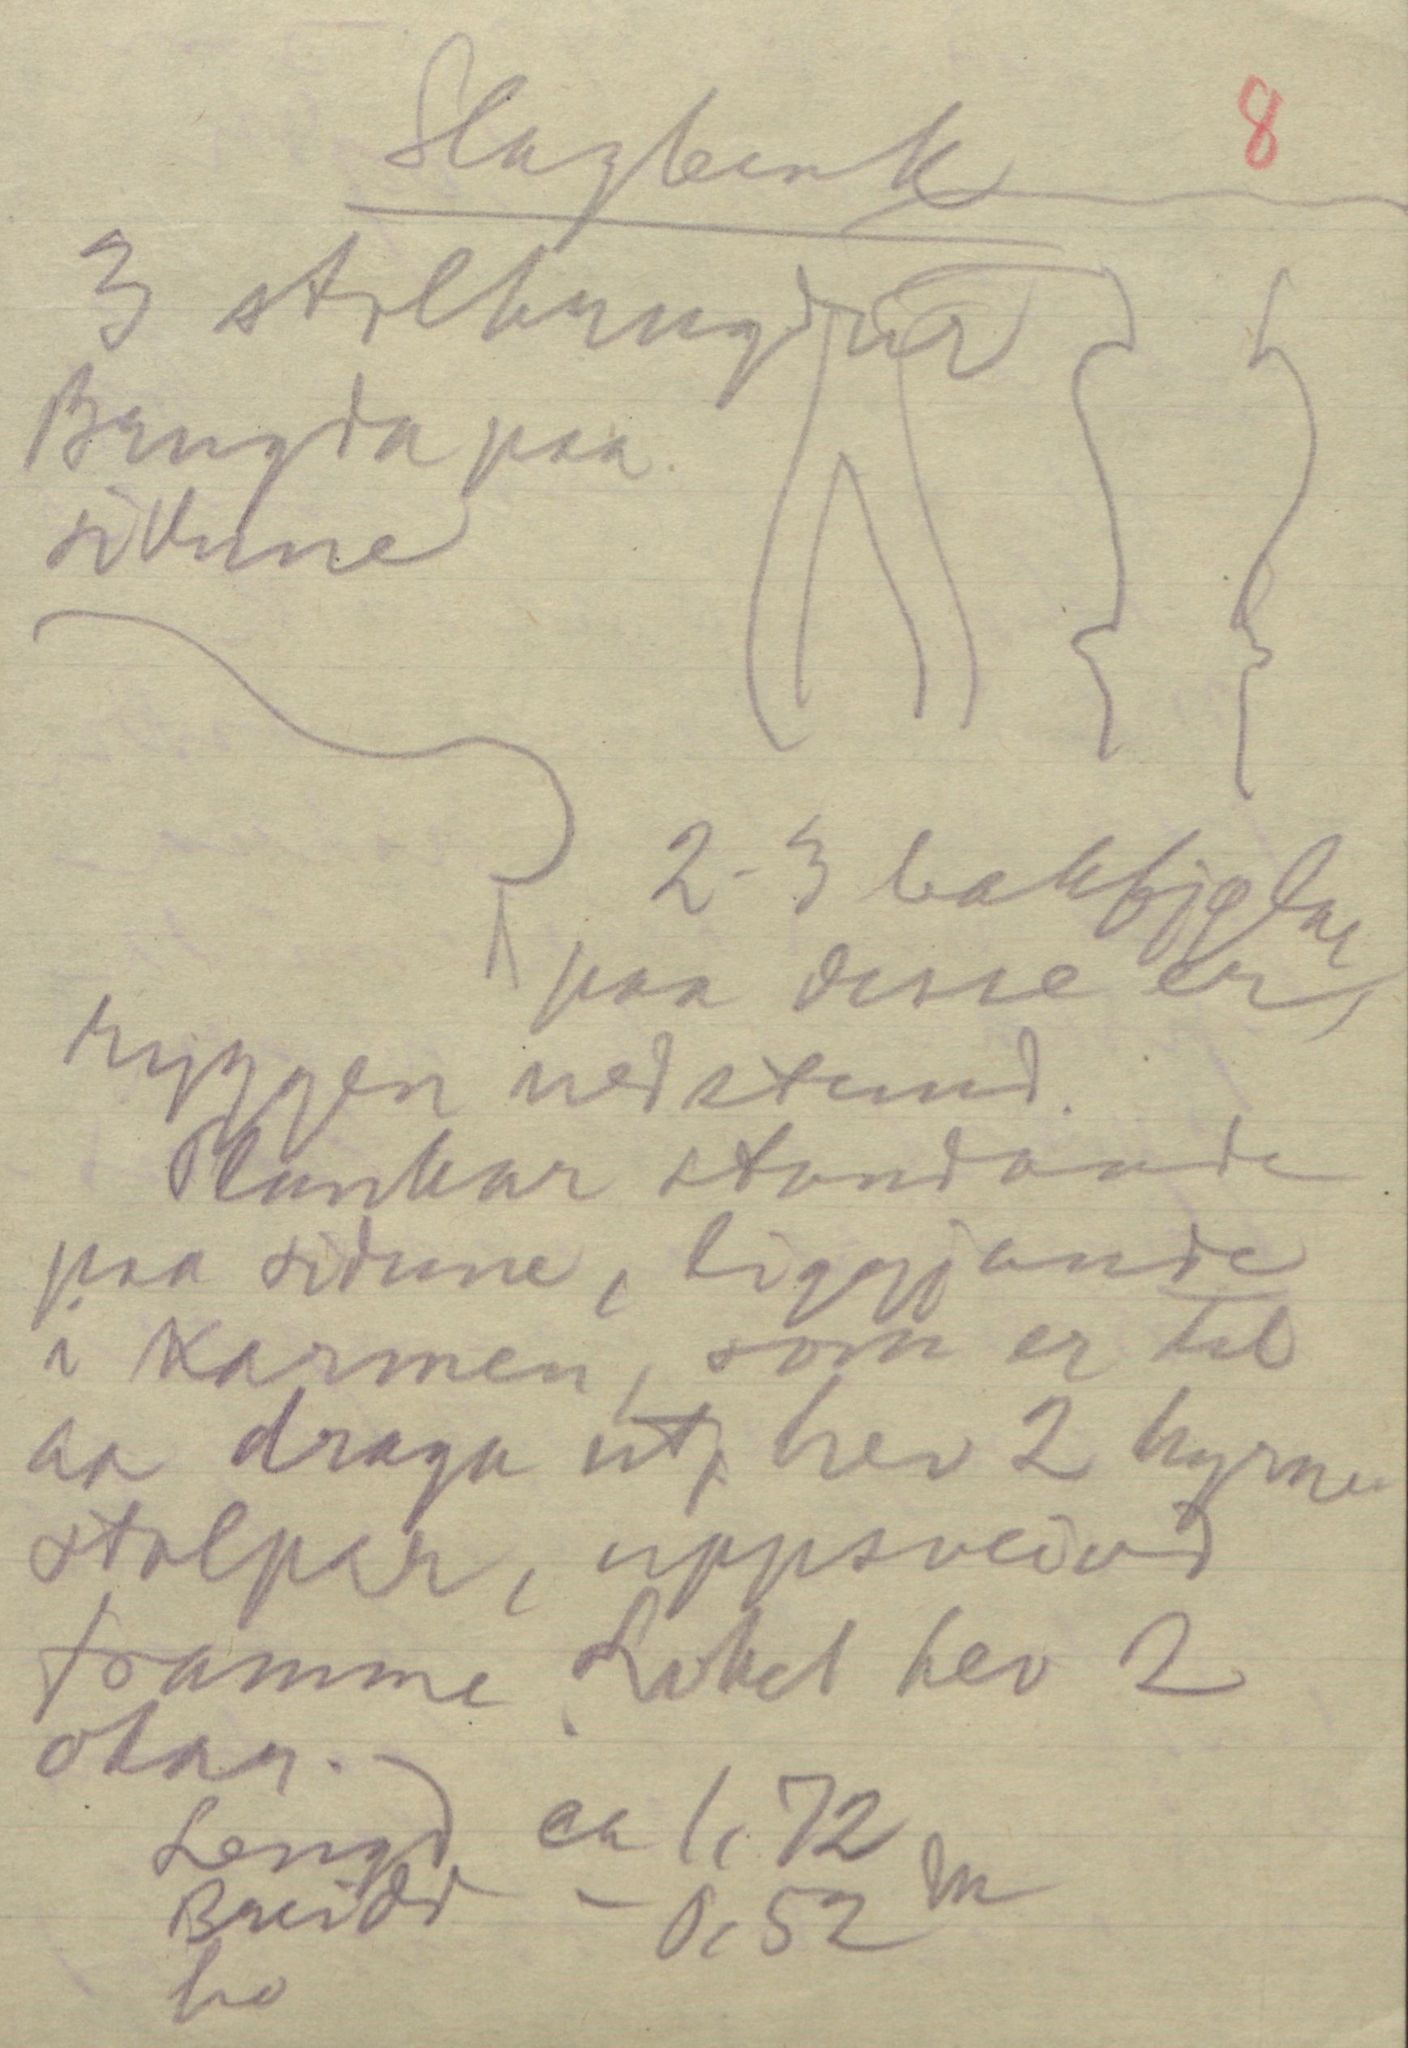 8
Slagbenk
3 stolbrugdur
Brugda paa
sidune
2-3 bakfjølar
paa disse er
ryggen nedstemd.
Plankar standande
paa sidune, liggjande
i Karmen, som er til
aa draga ut, hev 2 hyrne
stolpar, uppsveivd
framme. Loket hev 2
okar.
Lengd ca 1,72
Breidd - 0,52 m
ho